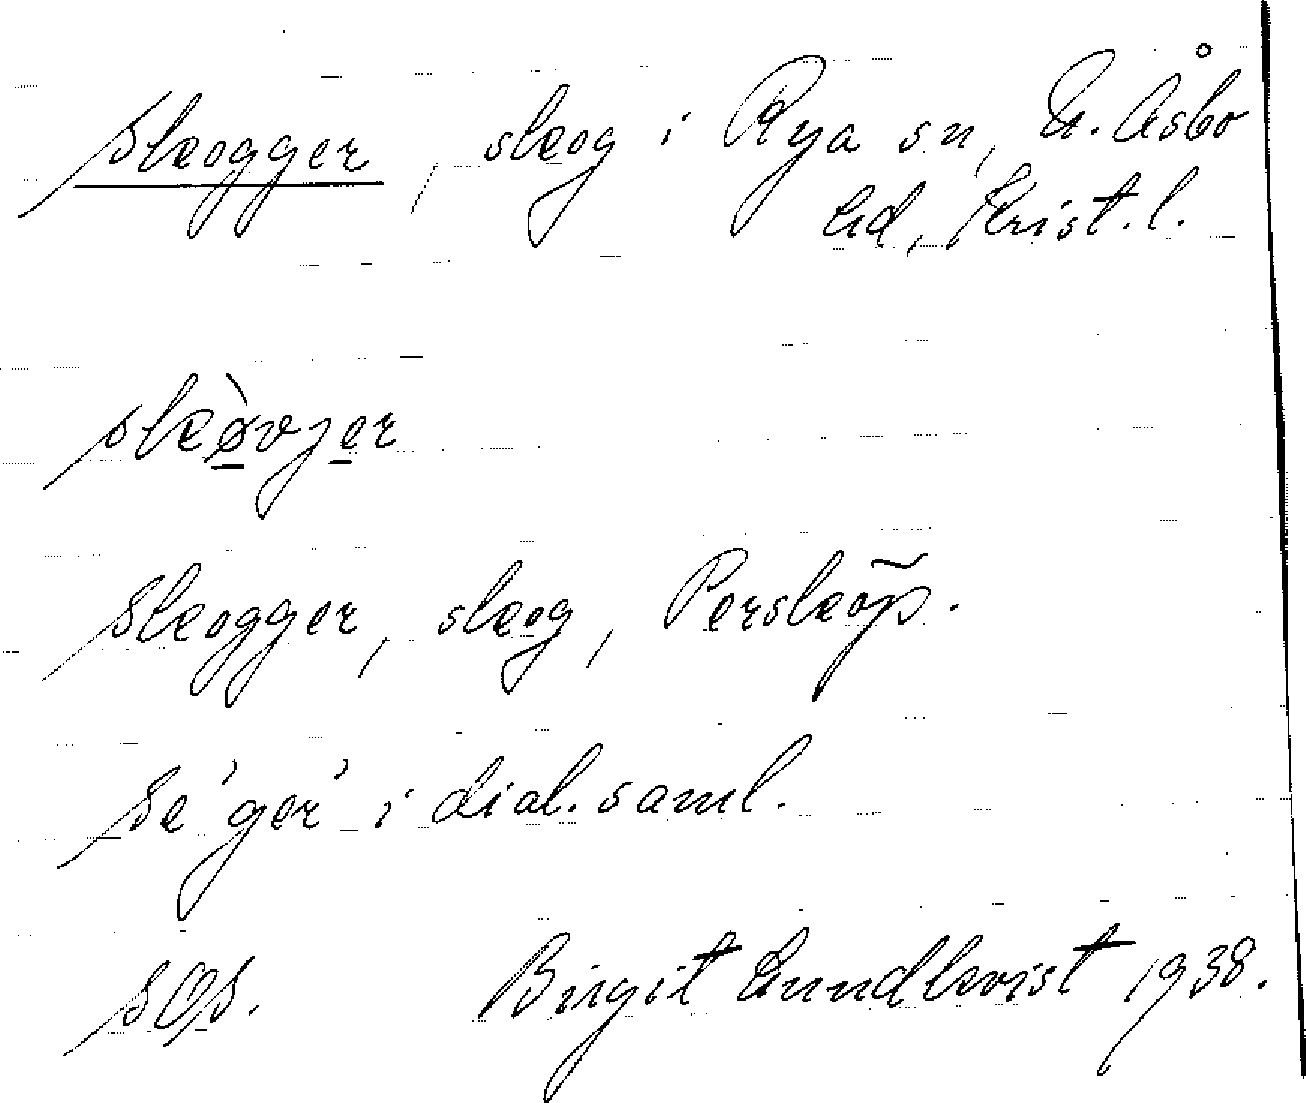 Skogger, skog i Rya sn, N. Åsbo
hd, Krist. l.
skòvjer
Skogger, skog, Perskõp.
Se 'ger' i dial. saml.
SOS. Birgit Lundkvist 1938.